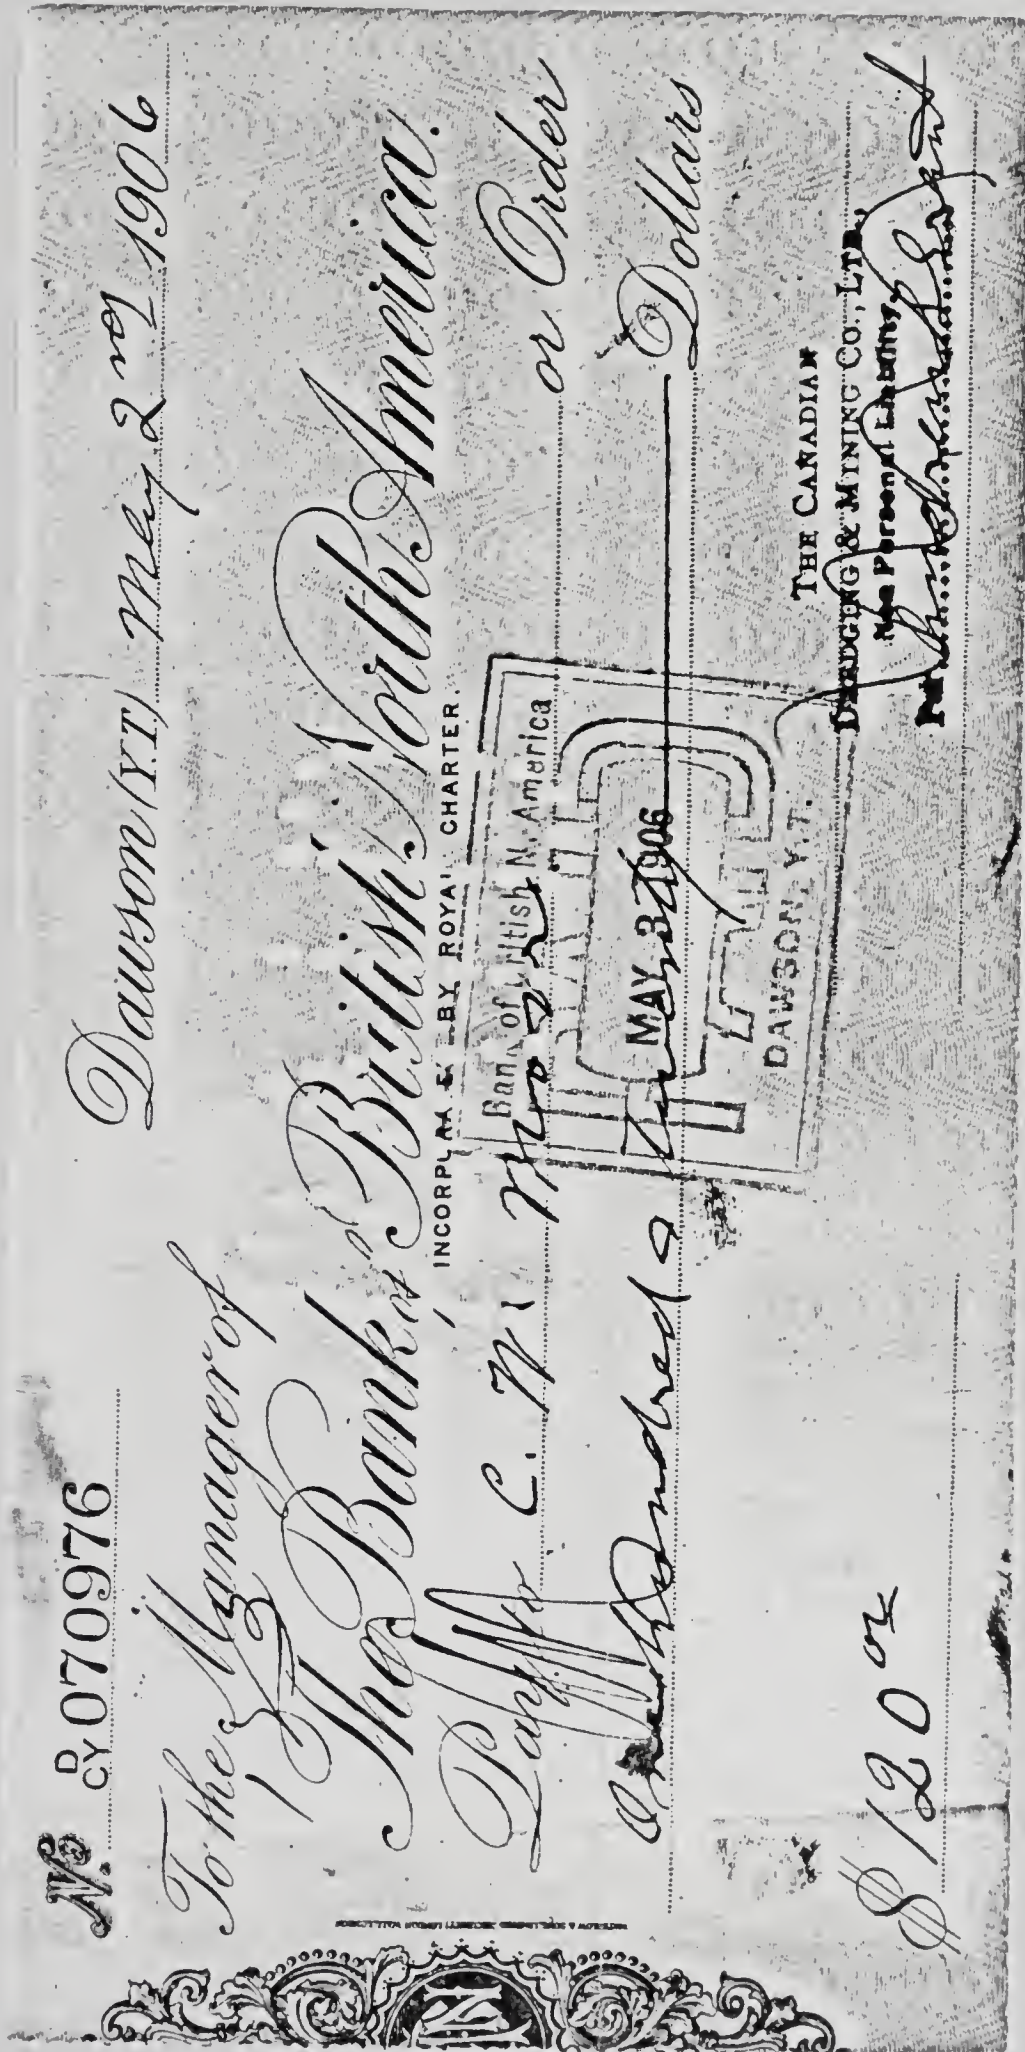 No. D/CY 070976
Dawson (Y.T.) May 2nd 1906
To the Manager of
The Bank of British North America.
INCORPORATED BY ROYAL CHARTER.
Pay to C. W. or Order
One Hundred & Twenty Dollars
Bank of British N. America
PAID
MAY 3 1906
DAWSON, Y.T.
$120 00
THE CANADIAN
DREDGING & MINING CO., LTD.,
Non Personal Liability,
Per